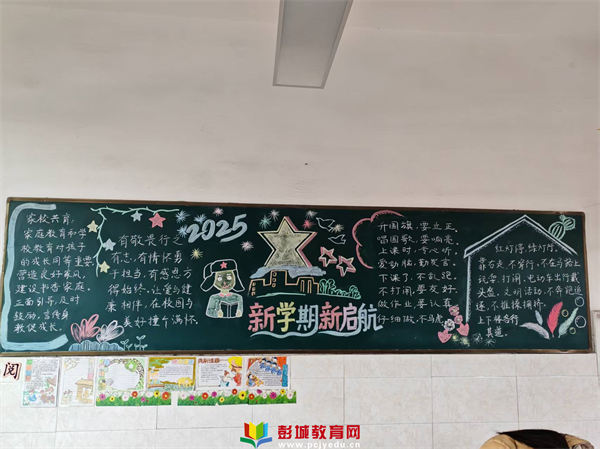 家校共育:
家庭教育和学
校教育对孩子
的成长同等重要
营造良好家风,
建设书香家庭,
正面引导,及时
鼓励,言传身
教促成长。
有敬畏行之
有志,有情怀勇
于担当,有感恩方
得始终,让爱与健
康相伴,在校园与
美好撞个满怀.
2025
新学期新启航
升国旗,要立正,
唱国歌,要响亮
上课时,专心听,
爱动脑,勤发言。
下课了,不乱跑,
不打闹,要友好。
做作业,要认真
仔细做,不马虎
红灯停,绿灯行。
靠右走,不穿行,不在马路上
玩耍,打闹,电动车出行戴
头盔,文明活动,不奔跑追
逐,不推搡拥挤,
上下楼靠右
阅
彭城教育网
www.pcjyedu.cn